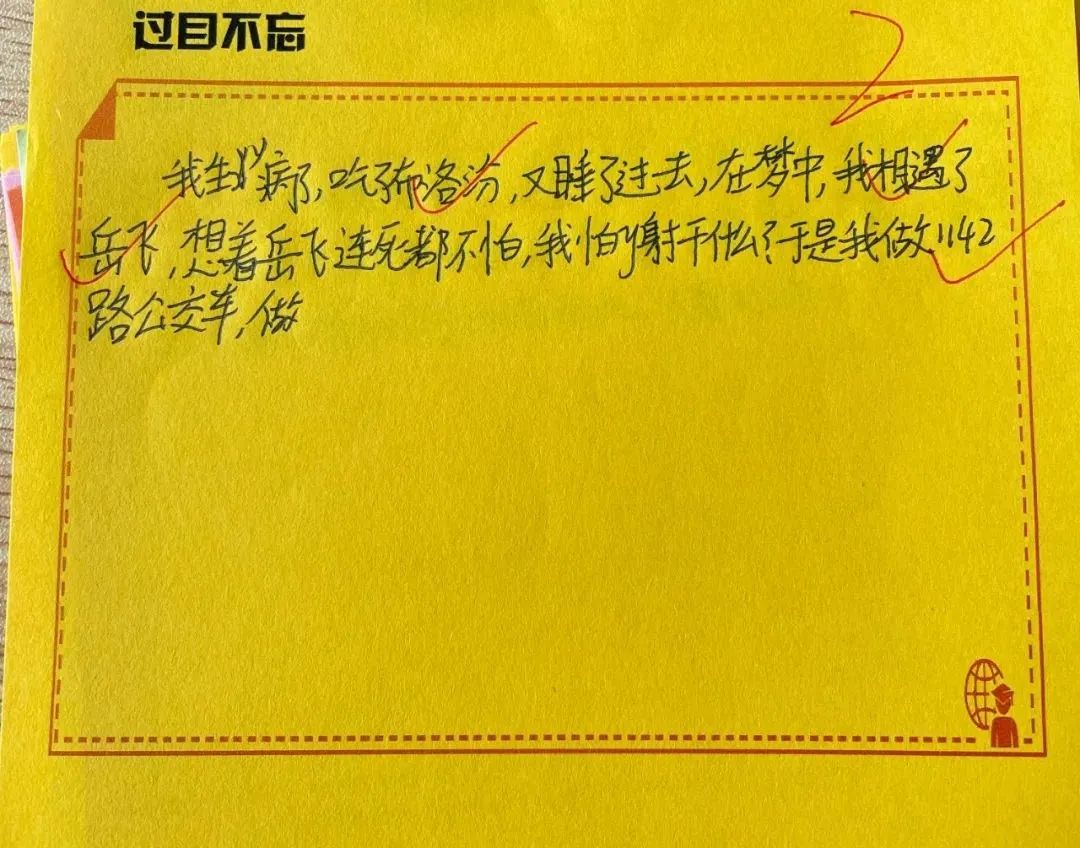 过目不忘
2
我生病了,吃了布洛芬,又睡了过去,在梦中,我相遇了
岳飞,想着岳飞连死都不怕,我怕射干什么?于是我做1142
路公交车,做